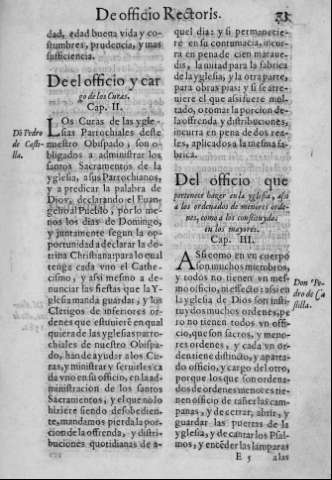 De officio Rectoris. 73
dad, edad buena vida y co-
stumbres, prudencia, y mas
sufficiencia.
De el officio y car
go de los Curas.
Cap. II.
Dõ Pedro
de Casti-
lla.
LOs Curas de las ygle-
sias Parrochiales deste
nuestro Obispado, son o-
bligados a administrar los
santos Sacramentos de la
yglesia, a sus Parrochianos,
y a predicar la palabra de
Dios, declarando el Euan-
gelio al Pueblo, por lo me-
nos los dias de Domingo,
y juntamente segun la op-
portunidad a declarar la do-
trina Christiana para lo qual
tenga cada vno el Cathe-
cismo, y assi mesmo a de-
nunciar las fiestas que la Y-
glesia manda guardar, y los
Clerigos de inferiores or-
denes que estuuierẽ en qual
quiera de las yglesias parro-
chiales de nuestro Obispa-
do, han de ayudar a los Cu-
ras, y ministrar y seruirles ca
da vno en su officio, en la ad-
ministracion de los santos
Sacramentos, y el que no lo
hiziere siendo desobedien-
te, mandamos pierda la por-
cion de la offrenda, y distri-
buciones quotidianas de a-
quel dia: y si permanecie-
re en su contumacia, incur-
ra en pena de cien maraue-
dis, la mitad para la fabrica
de la yglesia, y la otra parte,
para obras pias: y si se atre-
uiere el que assi fuere mul-
tado, o tomar la porcion de-
la offrenda, y distribuciones,
incurra en pena de dos rea-
les, aplicados a la mesma fa-
brica.
Del officio que
pertenece hazer en la yglesia, assi
a los ordenados de menores orde-
nes, como a los constituydos
en los mayores.
Cap. III.
Don Pe-
dro de Ca
stilla.
ASsi como en vn cuerpo
son muchos miembros,
y todos no tienen vn mes-
mo officio, ni effecto: assi en
la yglesia de Dios son insti-
tuydos muchos ordenes, pe
ro no tienen todos vn offi-
cio, que son sacros, y meno-
res ordenes, y cada vn or-
den tiene distincto, y aparta-
do officio, y cargo del otro,
porque los que son ordena-
dos de ordenes menores tie-
nen officio de tañer las cam-
panas, y de cerrar, abrir, y
guardar las puertas de la
yglesia, y de cantar los Psal-
mos, y encẽder las lamparas
E 5 alas